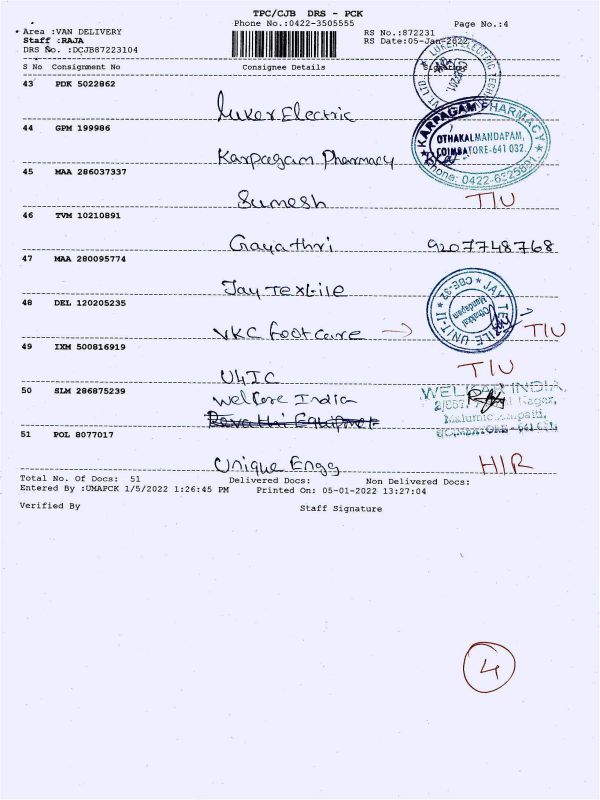 TPC/CJB DRS - PCK
Phone No.:0422-3505555
Page No.:4
Area :VAN DELIVERY
Staff :RAJA
DRS No. :DCJB87223104
RS No.:872231
RS Date:05-Jan-2022
S No Consignment No Consignee Details Signature
43 PDK 5022862
Luker Electric
LUKER ELECTRIC TECH
44 GPM 199986
Karpagam Pharmacy
KARPAGAM PHARMACY
OTHAKALMANDAPAM,
COIMBATORE-641 032.
Phone: 0422-6525691
45 MAA 286037337
Sumesh T/U
46 TVM 10210891
Gayathri 9207748768
47 MAA 280095774
Jay Textile
JAY TEXTILE UNIT-II
CBE-32
Othakkal
Mandapam
48 DEL 120205235
VKC footcare → T/U
49 IXM 500816919
U4IC T/U
50 SLM 286875239
Welkare India
Revathi Equipmet
WELKAR INDIA,
Nagar,
51 POL 8077017
Unique Engg H/R
Total No. Of Docs: 51 Delivered Docs: Non Delivered Docs:
Entered By :UMAPCK 1/5/2022 1:26:45 PM Printed On: 05-01-2022 13:27:04
Verified By Staff Signature
4